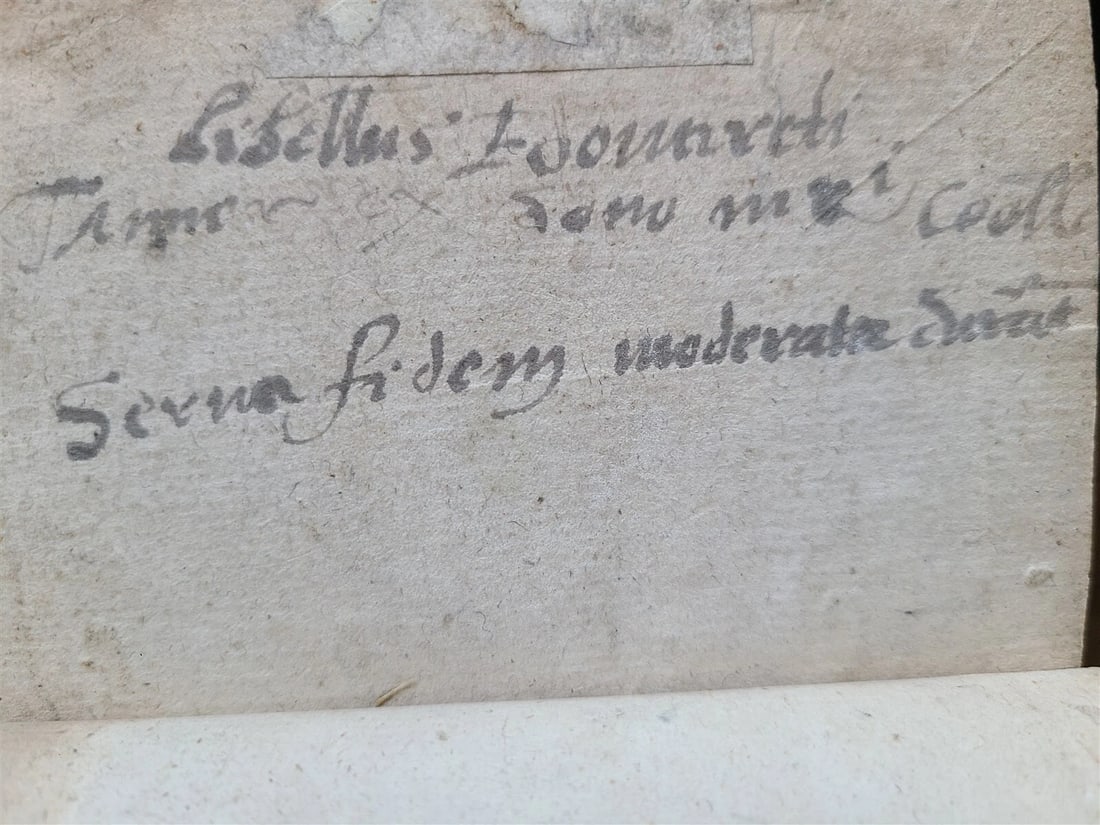 Libellus Edouardi
Tanner ex dono mri Cooll
Serua fidem moderata durāt